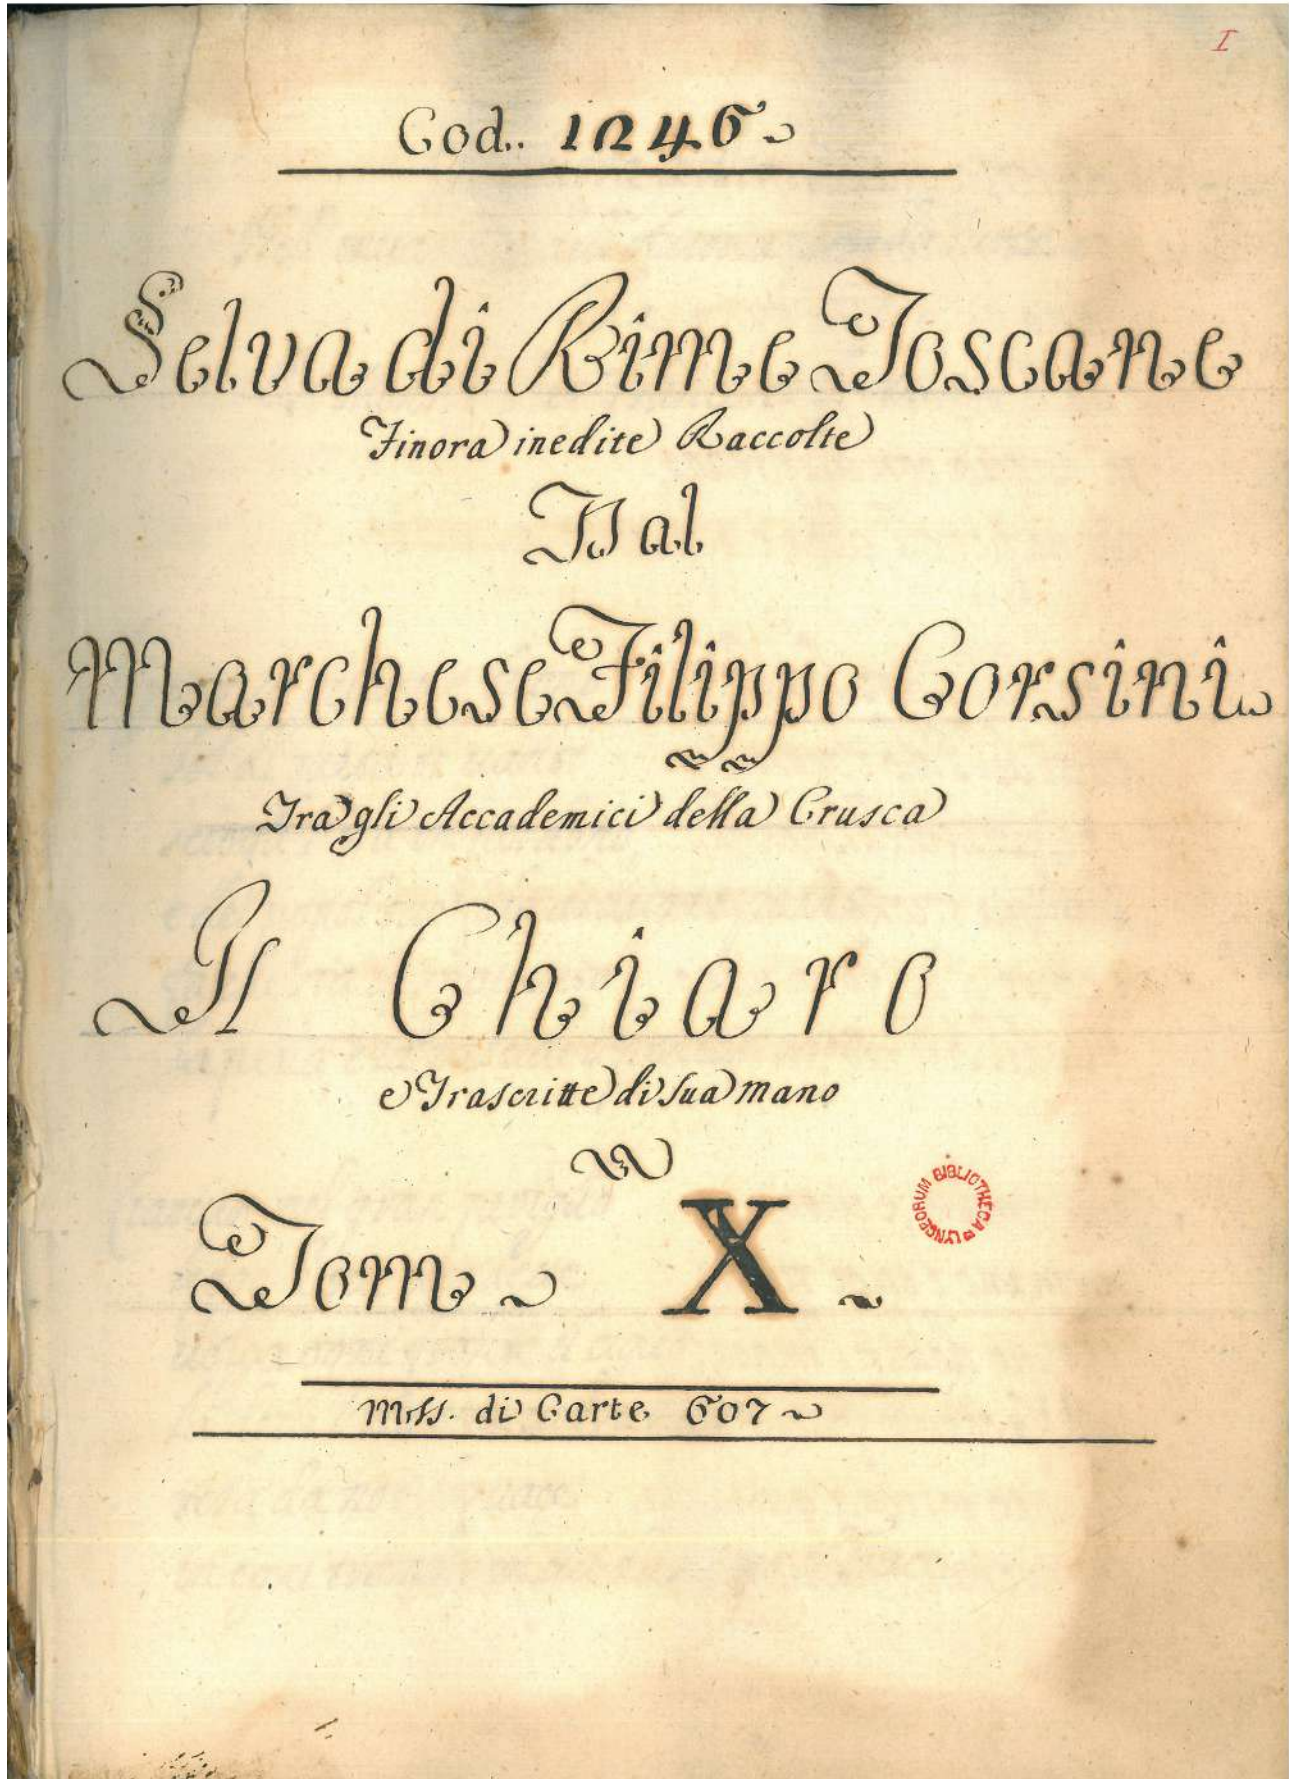 I
Cod. 1246
Selva di Rime Toscane
Finora inedite Raccolte
Dal
Marchese Filippo Corsini
Tra gli Accademici della Crusca
Il Chiaro
e Trascritte di sua mano
Tom X
BIBLIOTHECA LYNCEORUM
Mss. di Carte 607